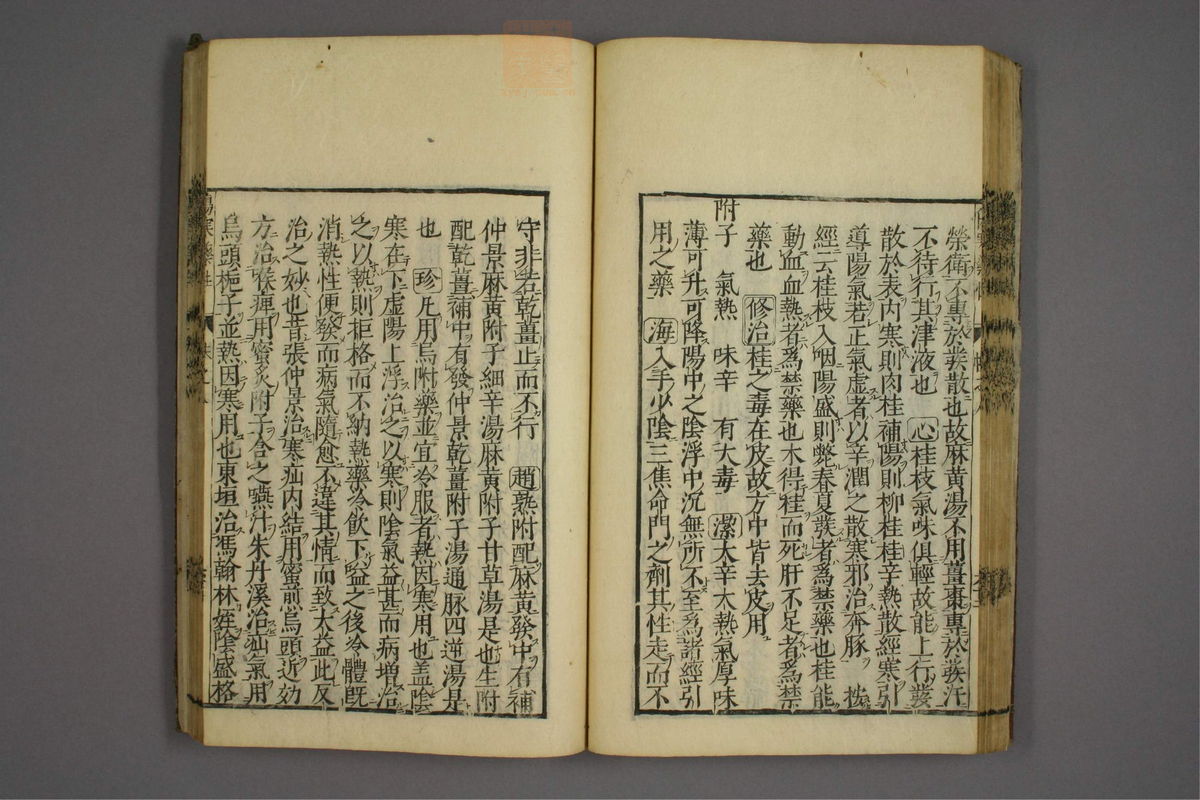 榮衛不專於發散也故麻黃湯不用薑棗專於發汗
不待行其津液也 心桂枝氣味俱輕故能上行發
散於表內寒則肉桂補陽則柳桂桂辛熱散經寒引
導陽氣若正氣虛者以辛潤之散寒邪治奔豚 按
經云桂枝入咽陽盛則斃春夏發者爲禁藥也桂能
動血血熱者爲禁藥也木得桂而死肝不足者爲禁
藥也 修治桂之毒在皮故方中皆去皮用
附子 氣熱 味辛 有大毒 潔大辛大熱氣厚味
薄可升可降陽中之陰浮中沉無所不至爲諸經引
用之藥 海入手少陰三焦命門之劑其性走而不
守非若乾薑止而不行 趙熟附配麻黃發中有補
仲景麻黃附子細辛湯麻黃附子甘草湯是也生附
配乾薑補中有發仲景乾薑附子湯通脉四逆湯是
也 珍凡用烏附藥並宜冷服者熱因寒用也盖陰
寒在下虛陽上浮治之以寒則陰氣益甚而病增治
之以熱則拒格而不納熱藥冷飲下益之後冷體既
消熱性便發而病氣隨愈不違其情而致大益此反
治之妙也昔張仲景治寒疝內結用蜜煎烏頭近効
方治喉痺用蜜炙附子含之嚥汁朱丹溪治疝氣用
烏頭梔子並熱因寒用也東垣治馮翰林姪陰盛格